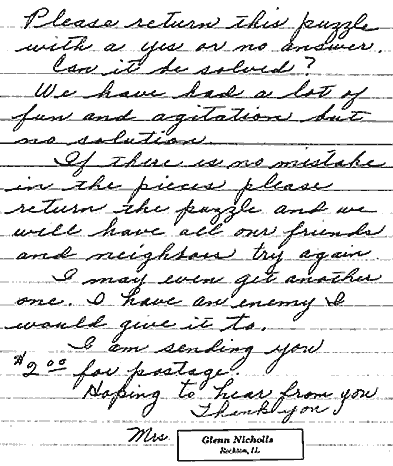 Please return this puzzle
with a yes or no answer.
Can it be solved?
We have had a lot of
fun and agitation but
no solution.
If there is no mistake
in the pieces please
return the puzzle and we
will have all our friends
and neighbors try again.
I may even get another
one. I have an enemy I
would give it to.
I am sending you
$2.00 for postage.
Hoping to hear from you
Thank you
Mrs. Glenn Nicholls
Rockton, IL